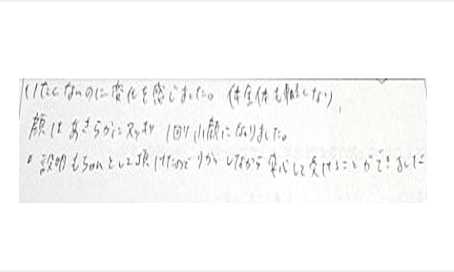 いたくないのに変化を感じました。体全体も軽くなり、
顔はあきらかにスッキリ 1回り小顔になりました。
説明もちゃんとして頂けたのでりかいしながら安心して受けることができました